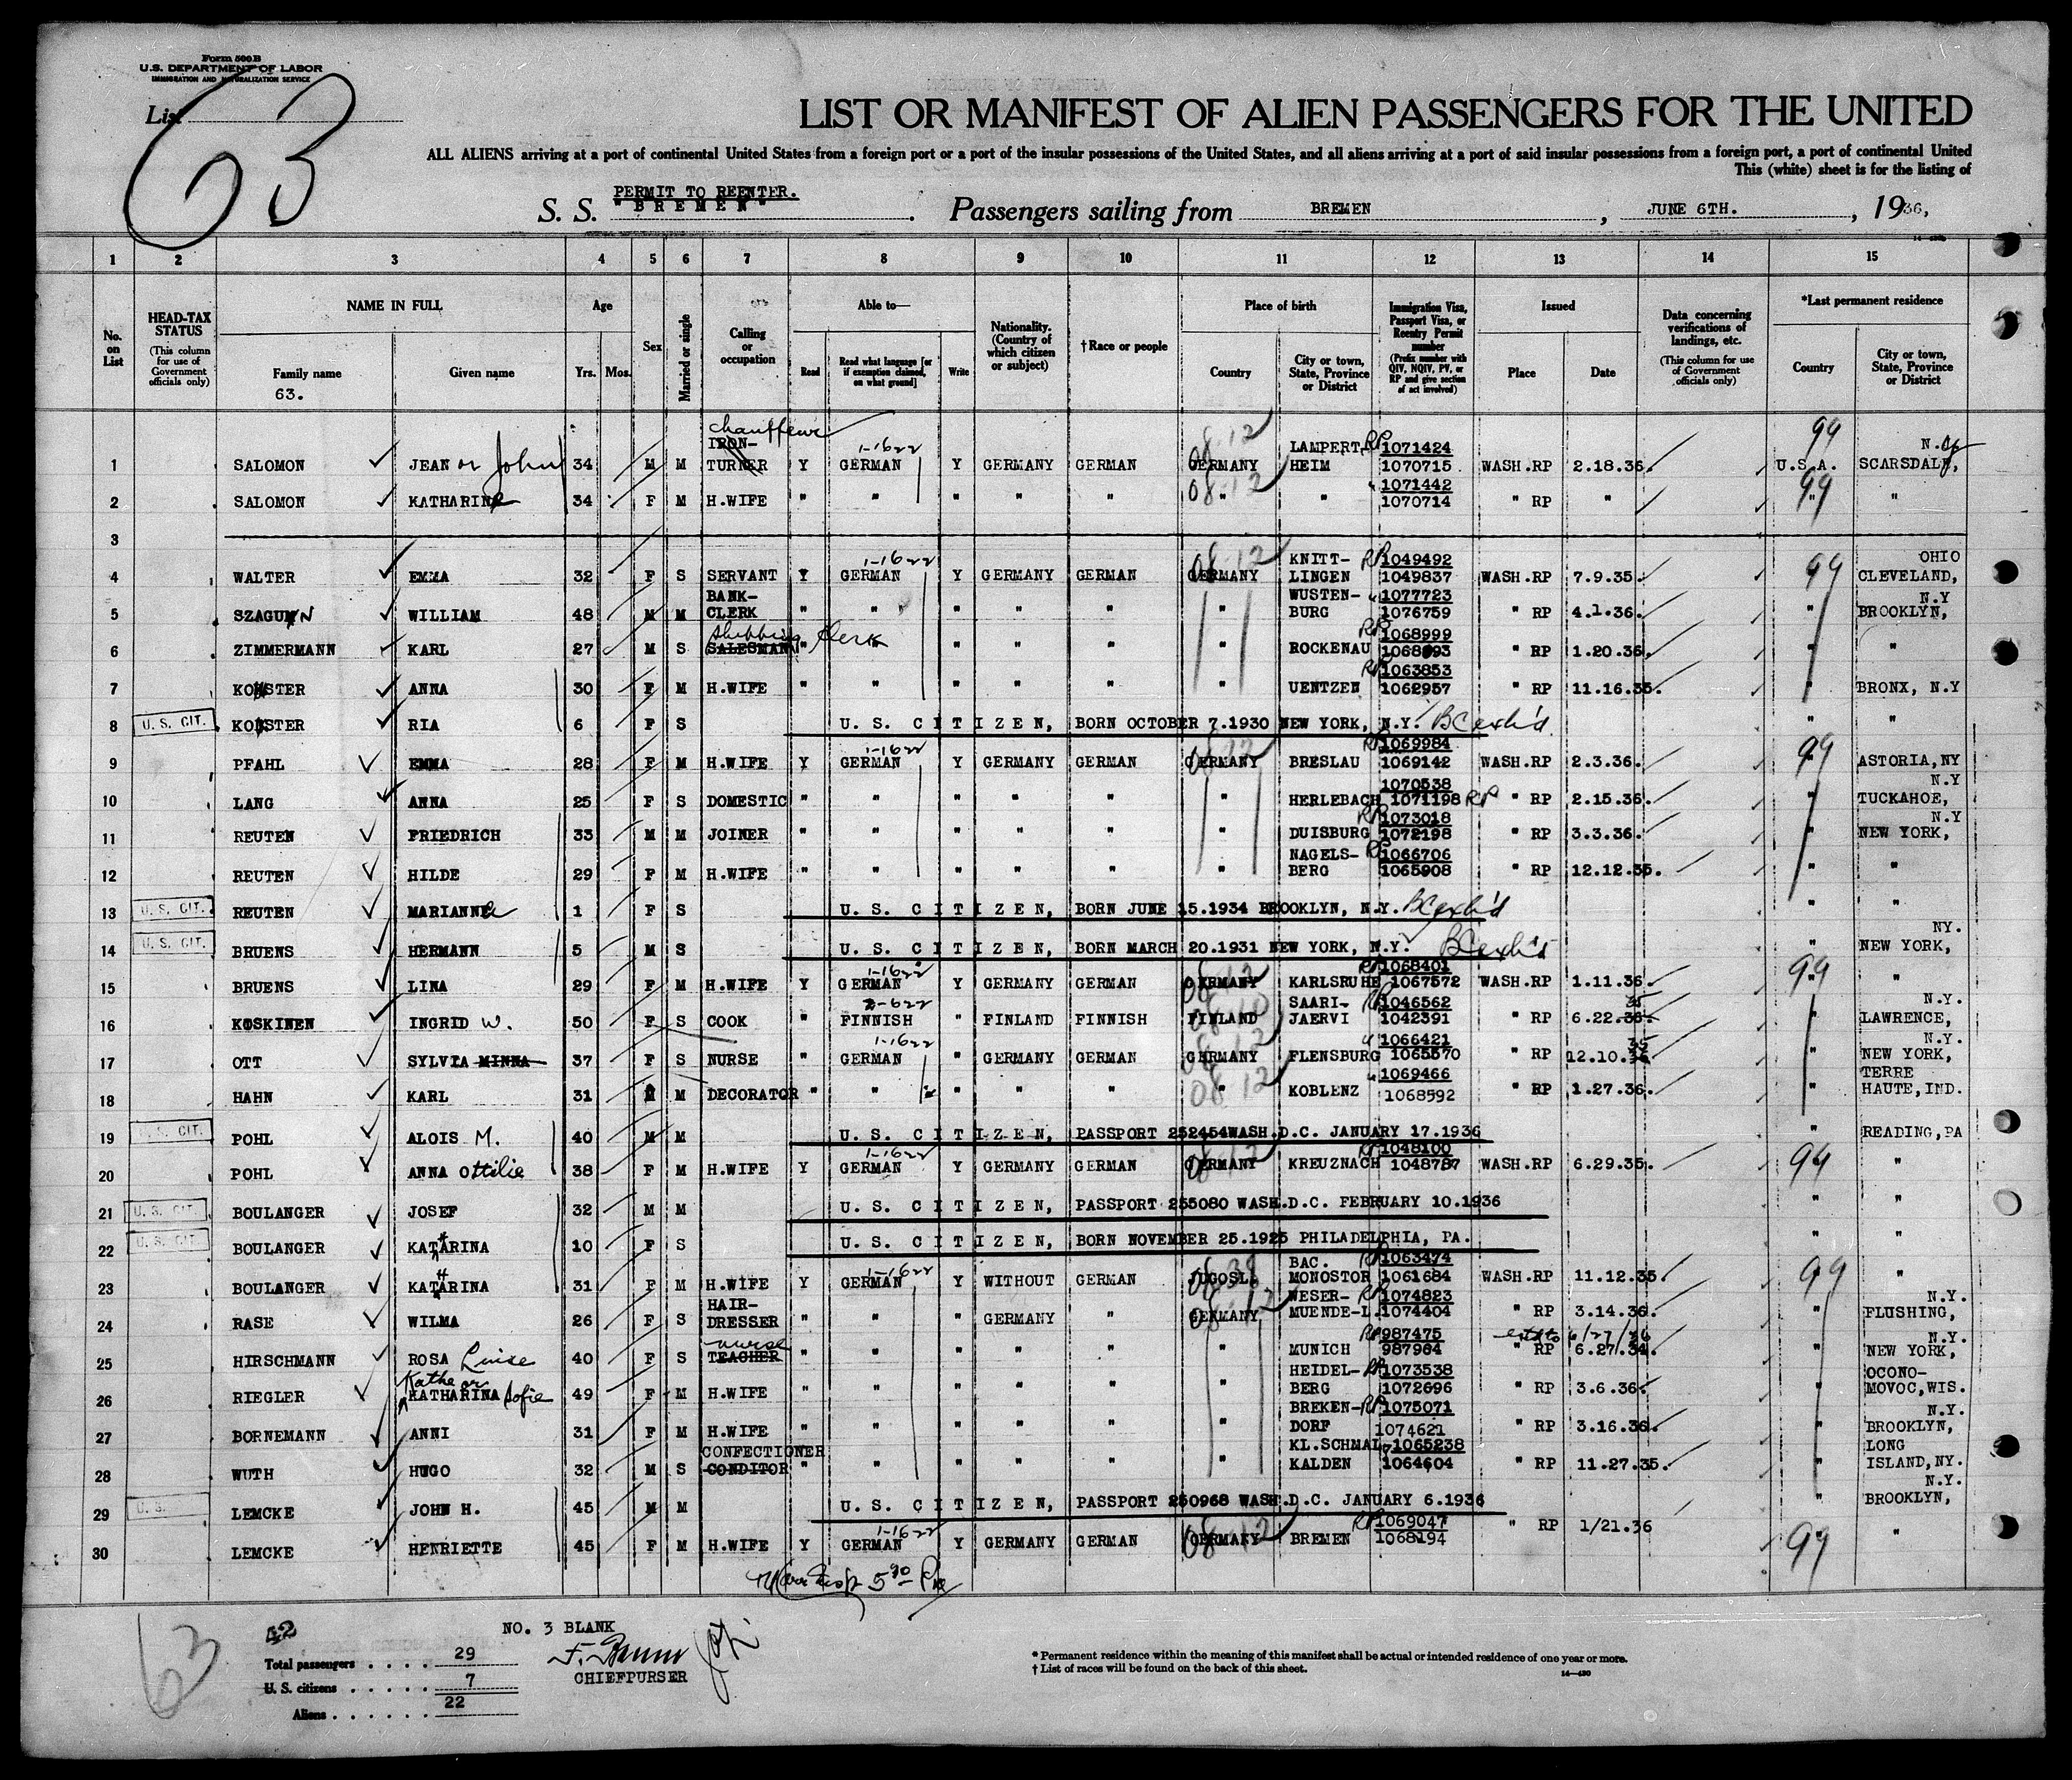 Form 500 B
U.S. DEPARTMENT OF LABOR
IMMIGRATION AND NATURALIZATION SERVICE
List 63
LIST OR MANIFEST OF ALIEN PASSENGERS FOR THE UNITED
ALL ALIENS arriving at a port of continental United States from a foreign port or a port of the insular possessions of the United States, and all aliens arriving at a port of said insular possessions from a foreign port, a port of continental United
This (white) sheet is for the listing of
PERMIT TO REENTER.
S. S. "BREMEN" . Passengers sailing from BREMEN , JUNE 6TH. , 1936,
1 2 3 4 5 6 7 8 9 10 11 12 13 14 15
No. on List
HEAD-TAX STATUS (This column for use of Government officials only)
NAME IN FULL Family name Given name
63.
Age Yrs. Mos.
Sex
Married or single
Calling or occupation
Able to— Read Read what language [or if exemption claimed, on what ground] Write
Nationality. (Country of which citizen or subject)
†Race or people
Place of birth Country City or town, State, Province or District
Immigration Visa, Passport Visa, or Reentry Permit number (Prefix number with QIV, NQIV, PV, or RP and give section of act involved)
Issued Place Date
Data concerning verifications of landings, etc. (This column for use of Government officials only)
*Last permanent residence Country City or town, State, Province or District
chauffeur 1-1622 08-12 RP 1071424 99 N.Y.
1 SALOMON JEAN or John 34 M M IRON-TURNER Y GERMAN Y GERMANY GERMAN GERMANY LAMPERT HEIM 1070715 WASH.RP 2.18.36. U.S.A. SCARSDALE,
2 SALOMON KATHARINE 34 F M H.WIFE " " " " " 08-12 " " 1071442 1070714 " RP " 99 " "
3
4 WALTER EMMA 32 F S SERVANT Y GERMAN 1-1622 Y GERMANY GERMAN GERMANY 08-12 KNITT-LINGEN RP 1049492 1049837 WASH.RP 7.9.35. 99 " OHIO CLEVELAND,
5 SZAGUNN WILLIAM 48 M M BANK-CLERK " " " " " " WUSTEN-BURG " 1077723 1076759 " RP 4.1.36. " N.Y BROOKLYN,
6 ZIMMERMANN KARL 27 M S SALESMAN shipping Clerk " " " " " " ROCKENAU RP 1068999 1068093 " RP 1.20.36. " "
7 KOSTER ANNA 30 F M H.WIFE " " " " " " UENTZEN RP 1063853 1062957 " RP 11.16.35. " BRONX, N.Y
8 U. S. CIT. KOSTER RIA 6 F S U. S. CITIZEN, BORN OCTOBER 7.1930 NEW YORK, N.Y. BC exh'd " "
9 PFAHL EMMA 28 F M H.WIFE Y GERMAN 1-1622 Y GERMANY GERMAN GERMANY BRESLAU RP 1069984 1069142 WASH.RP 2.3.36. 99 " ASTORIA, NY
10 LANG ANNA 25 F S DOMESTIC " " " " " " HERLEBACH 1070538 1071198 RP " RP 2.15.36. " N.Y TUCKAHOE,
11 REUTEN FRIEDRICH 33 M M JOINER " " " " " " DUISBURG RP 1073018 1072198 " RP 3.3.36. " N.Y NEW YORK,
12 REUTEN HILDE 29 F M H.WIFE " " " " " " NAGELS-BERG RP 1066706 1065908 " RP 12.12.35. " "
13 U. S. CIT. REUTEN MARIANNE 1 F S U. S. CITIZEN, BORN JUNE 15.1934 BROOKLYN, N.Y. BC exh'd " "
14 U. S. CIT. BRUENS HERMANN 5 M S U. S. CITIZEN, BORN MARCH 20.1931 NEW YORK, N.Y. BC exh'd " NY. NEW YORK,
15 BRUENS LINA 29 F M H.WIFE Y GERMAN 1-1622 Y GERMANY GERMAN GERMANY 08-12 KARLSRUHE RP 1068401 1067572 WASH.RP 1.11.36. 99 " "
16 KOSKINEN INGRID W. 50 F S COOK " FINNISH 2-622 " FINLAND FINNISH FINLAND 08-10 SAARI-JAERVI RP 1046562 1042391 " RP 6.22.36. 35 " N.Y. LAWRENCE,
17 OTT SYLVIA MINNA 37 F S NURSE " GERMAN 1-1622 " GERMANY GERMAN GERMANY 08-12 FLENSBURG " 1066421 1065570 " RP 12.10.36 35 " N.Y. NEW YORK,
18 HAHN KARL 31 M M DECORATOR " " " " " " 08-12 KOBLENZ " 1069466 1068592 " RP 1.27.36. " TERRE HAUTE, IND.
19 U. S. CIT. POHL ALOIS M. 40 M M U. S. CITIZEN, PASSPORT 252454 WASH.D.C. JANUARY 17.1936 " READING, PA
20 POHL ANNA Ottilie 38 F M H.WIFE Y GERMAN 1-1622 Y GERMANY GERMAN GERMANY 08-12 KREUZNACH RP 1048100 1048787 WASH.RP 6.29.35. 99 " "
21 U. S. CIT. BOULANGER JOSEF 32 M M U. S. CITIZEN, PASSPORT 255080 WASH.D.C. FEBRUARY 10.1936 " "
22 U. S. CIT. BOULANGER KATHARINA 10 F S U. S. CITIZEN, BORN NOVEMBER 25.1925 PHILADELPHIA, PA. " "
23 BOULANGER KATHARINA 31 F M H.WIFE Y GERMAN 1-1622 Y WITHOUT GERMAN JUGOSL. BAC. MONOSTOR RP 1063474 1061684 WASH.RP 11.12.35. 99 " "
24 RASE WILMA 26 F S HAIR-DRESSER " " " GERMANY " GERMANY 08-12 WESER-MUENDE-L. RP 1074823 1074404 " RP 3.14.36. " N.Y. FLUSHING,
25 HIRSCHMANN ROSA Luise 40 F S TEACHER nurse " " " " " " MUNICH RP 987475 987964 extd to 6/27/36 " RP 6.27.34. " N.Y. NEW YORK,
26 RIEGLER Kathe or KATHARINA Sofie 49 F M H.WIFE " " " " " " HEIDEL-BERG RP 1073538 1072696 " RP 3.6.36. " OCONO-MOVOC, WIS.
27 BORNEMANN ANNI 31 F M H.WIFE " " " " " " BREKEN-DORF RP 1075071 1074621 " RP 3.16.36. " N.Y. BROOKLYN,
28 WUTH HUGO 32 M S CONFECTIONER CONDITOR " " " " " " KL.SCHMAL-KALDEN 1065238 1064604 " RP 11.27.35. " LONG ISLAND, NY.
29 U. S. LEMCKE JOHN H. 45 M M U. S. CITIZEN, PASSPORT 250968 WASH.D.C. JANUARY 6.1936 " N.Y. BROOKLYN,
30 LEMCKE HENRIETTE 45 F M H.WIFE Y GERMAN 1-1622 Y GERMANY GERMAN GERMANY 08-12 BREMEN RP 1069047 1068194 " RP 1/21.36 99 " "
63
42
NO. 3 BLANK
Total passengers . . . . 29
U. S. citizens . . . . . 7
Aliens . . . . . . 22
CHIEFPURSER
* Permanent residence within the meaning of this manifest shall be actual or intended residence of one year or more.
† List of races will be found on the back of this sheet.
14—430